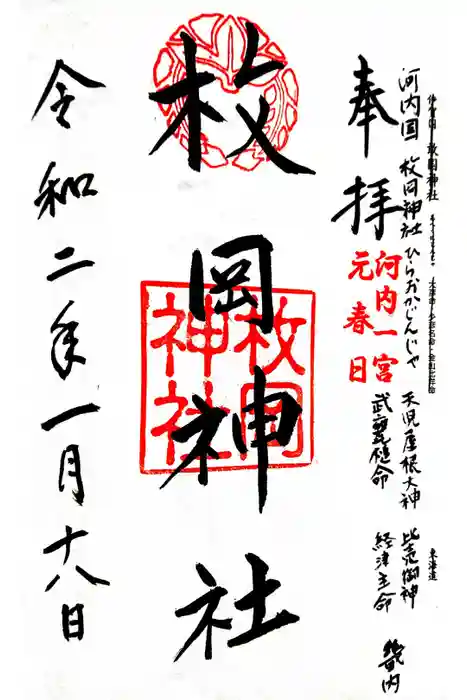 河内国 枚岡神社 ひらおかじんじゃ 天児屋根大神 比売御神
武甕槌命 経津主命
畿内
東海道
奉拝
河内一宮
元春日
枚岡神社
枚岡
神社
令和二年一月十八日